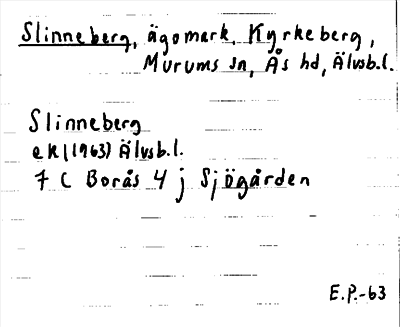 Slinneberg, ägomark, Kyrkeberg,
Murums sn, Ås hd, Älvsb.l.
Slinneberg
ek (1963) Älvsb.l.
7 C Borås 4 j Sjögården
E.P.-63